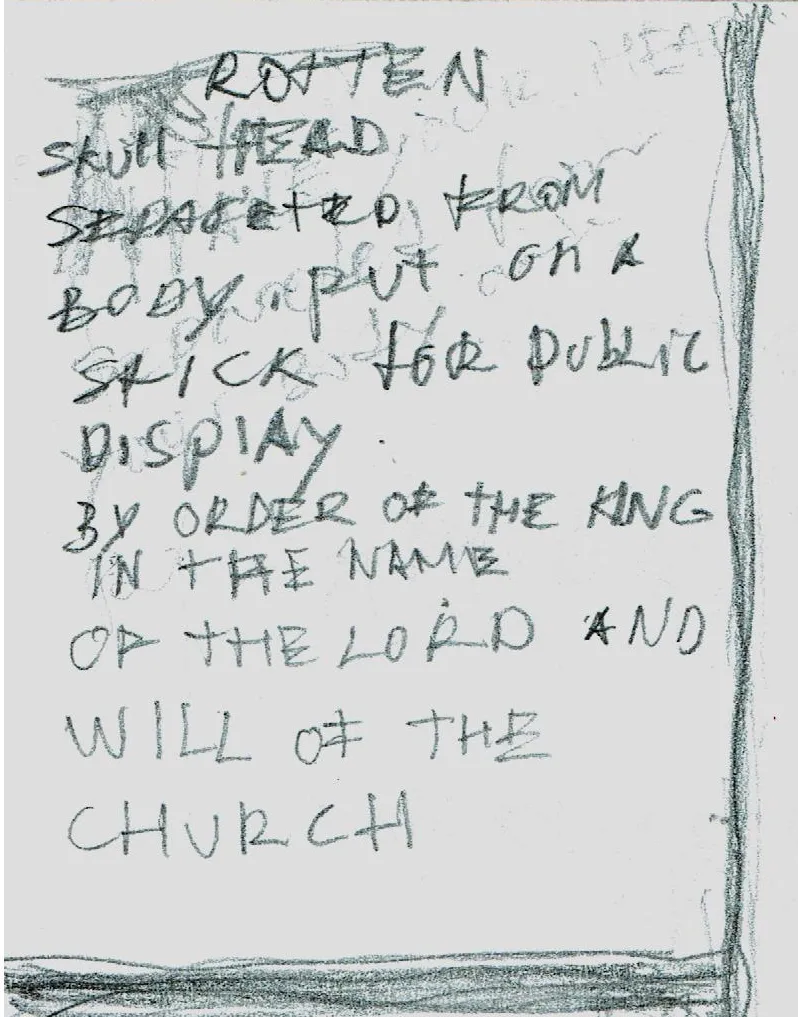 ROTTEN
SKUll HEAD
SEPARETED FROM
BODY PUT ON A
STICK FOR PUBLIC
DISPlAY
BY ORDER OF THE KING
IN THE NAME
OF THE LORD AND
WILL OF THE
CHURCH